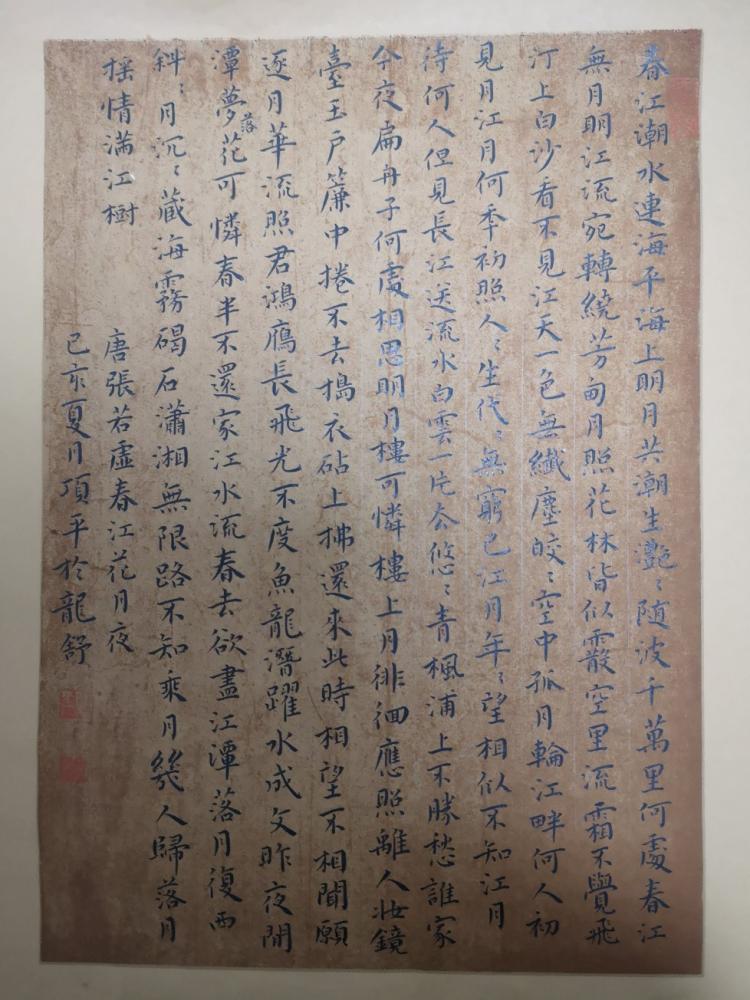 春江潮水連海平海上明月共潮生灩〻随波千萬里何處春江
無月明江流宛轉繞芳甸月照花林皆似霰空里流霜不覺飛
汀上白沙看不見江天一色無纖塵皎〻空中孤月輪江畔何人初
見月江月何秊初照人〻生代〻無窮已江月年〻望相似不知江月
待何人但見長江送流水白雲一片去悠〻青楓浦上不勝愁誰家
今夜扁舟子何處相思明月樓可憐樓上月徘徊應照離人妝鏡
臺玉户簾中捲不去搗衣砧上拂還來此時相望不相聞願
逐月華流照君鴻鴈長飛光不度魚龍潛躍水成文昨夜閒
潭夢落花可憐春半不還家江水流春去欲盡江潭落月復西
斜〻月沉〻藏海霧碣石瀟湘無限路不知乘月幾人歸落月
摇情满江樹
唐張若虛春江花月夜
己亥夏月項平於龍舒